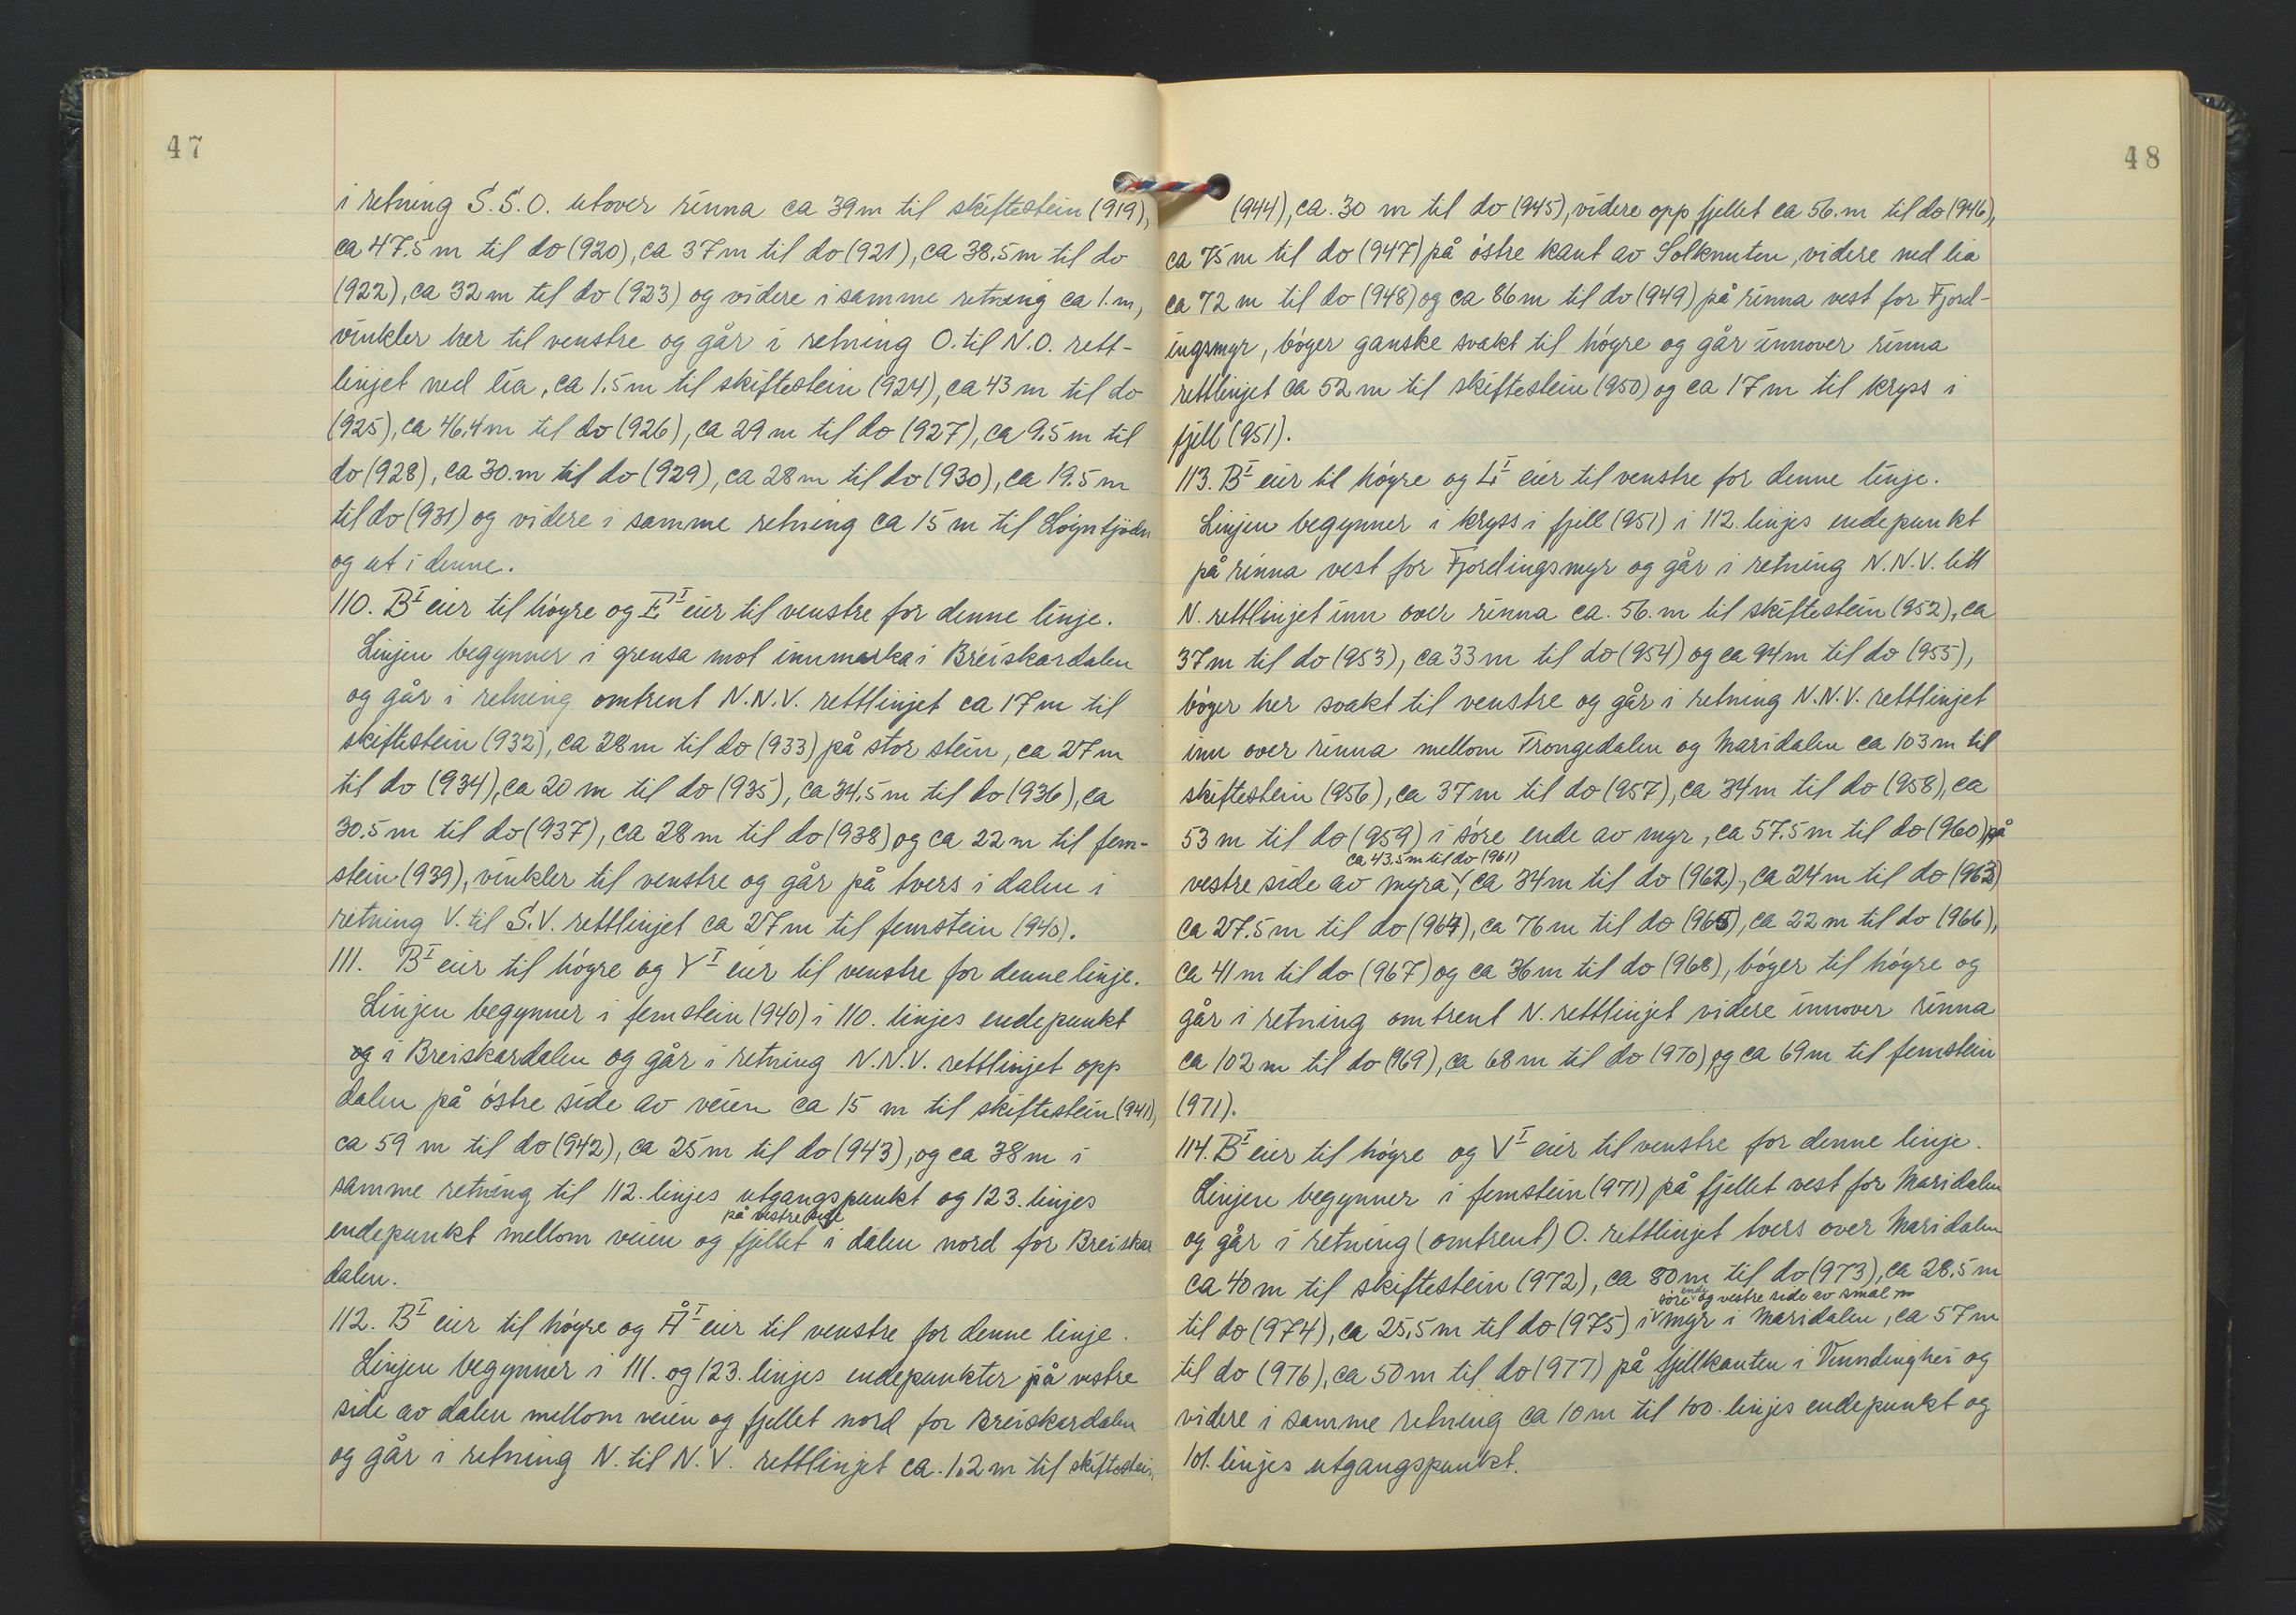 47
i retning S.S.O. utover rinna ca 39 m til skiftestein (919),
ca 47.5 m til do (920), ca 37 m til do (921), ca 38.5 m til do
(922), ca 32 m til do (923) og videre i samme retning ca 1. m,
vinkler her til venstre og går i retning O. til N.O. rett-
linjet ned lia, ca 1.5 m til skiftestein (924), ca 43 m til do
(925), ca 46.4 m til do (926), ca 29 m til do (927), ca 9.5 m til
do (928), ca 30. m til do (929), ca 28 m til do (930), ca 19.5 m
til do (931) og videre i samme retning ca 15 m til
og ut i denne.
110. B I eier til høgre og I eier til venstre for denne linje.
Linjen begynner i grensa mot innmarka i Breiskardalen
og går i retning omtrent N.N.V. rettlinjet ca 17 m til
skiftestein (932), ca 28 m til do (933) på stor stein, ca 27 m
til do (934), ca 20 m til do (935), ca 34.5 m til do (936), ca
30.5 m til do (937), ca 28 m til do (938) og ca 22 m til fem-
stein (939), vinkler til venstre og går på tvers i dalen i
retning V. til S.V. rettlinjet ca 27 m til femstein (940).
111. B I eier til høgre og Y I eier til venstre for denne linje.
Linjen begynner i femstein (940) i 110. linjes endepunkt
og i Breiskardalen og går i retning N.N.V. rettlinjet opp
dalen på østre side av veien ca 15 m til skiftestein (941),
ca 59 m til do (942), ca 25 m til do (943), og ca 38 m i
samme retning til 112. linjes utgangspunkt og 123. linjes
på vestre side
endepunkt mellom veien og fjellet i dalen nord for Breiskar
dalen.
112. B I eier til høgre og Å I eier til venstre for denne linje.
Linjen begynner i 111. og 123. linjes endepunkter på vestre
side av dalen mellom veien og fjellet nord for Breiskardalen
og går i retning N. til N.V. rettlinjet ca. 1.2 m til skiftestein,
48
(944), ca. 30 m til do (945), videre opp fjellet ca 56. m til do (946),
ca 75 m til do (947) på østre kant av Solknuten, videre ned lia
ca 72 m til do (948) og ca 86 m til do (949) på rinna vest for Fjord-
ingsmyr, bøger ganske svakt til høgre og går innover rinna
rettlinjet ca 52 m til skiftestein (950) og ca 17 m til kryss i
fjell (951).
113. B I eier til høgre og I eier til venstre for denne linje.
Linjen begynner i kryss i fjell (951) i 112. linjes endepunkt
på rinna vest for Fjordingsmyr og går i retning N.N.V. litt
N. rettlinjet inn over rinna ca. 56. m til skiftestein (952), ca
37 m til do (953), ca 33 m til do (954) og ca 94 m til do (955),
bøger her svakt til venstre og går i retning N.N.V. rettlinjet
inn over rinna mellom Trongedalen og Maridalen ca 103 m til
skiftestein (956), ca 37 m til do (957), ca 34 m til do (958), ca
53 m til do (959) i søre ende av myr, ca 57.5 m til do (960) på
ca 43.5 m til do (961)
vestre side av myra, ca 34 m til do (962), ca 24 m til do (963)
ca 27.5 m til do (964), ca 76 m til do (965), ca 22 m til do (966),
ca 41 m til do (967) og ca 36 m til do (968), bøger til høgre og
går i retning omtrent N. rettlinjet videre innover rinna
ca 102 m til do (969), ca 68 m til do (970) og ca 69 m til femstein
(971).
114. B I eier til høgre og V I eier til venstre for denne linje.
Linjen begynner i femstein (971) på fjellet vest for Maridalen
og går i retning (omtrent) O. rettlinjet tvers over Maridalen
ca 40 m til skiftestein (972), ca 80 m til do (973), ca 28.5 m
søre ende og vestre side av smal
til do (974), ca 25.5 m til do (975) i myr i Maridalen, ca 57 m
til do (976), ca 50 m til do (977) på fjellkanten i Vinndinghei og
videre i samme retning ca 10 m til 100. linjes endepunkt og
101. linjes utgangspunkt.